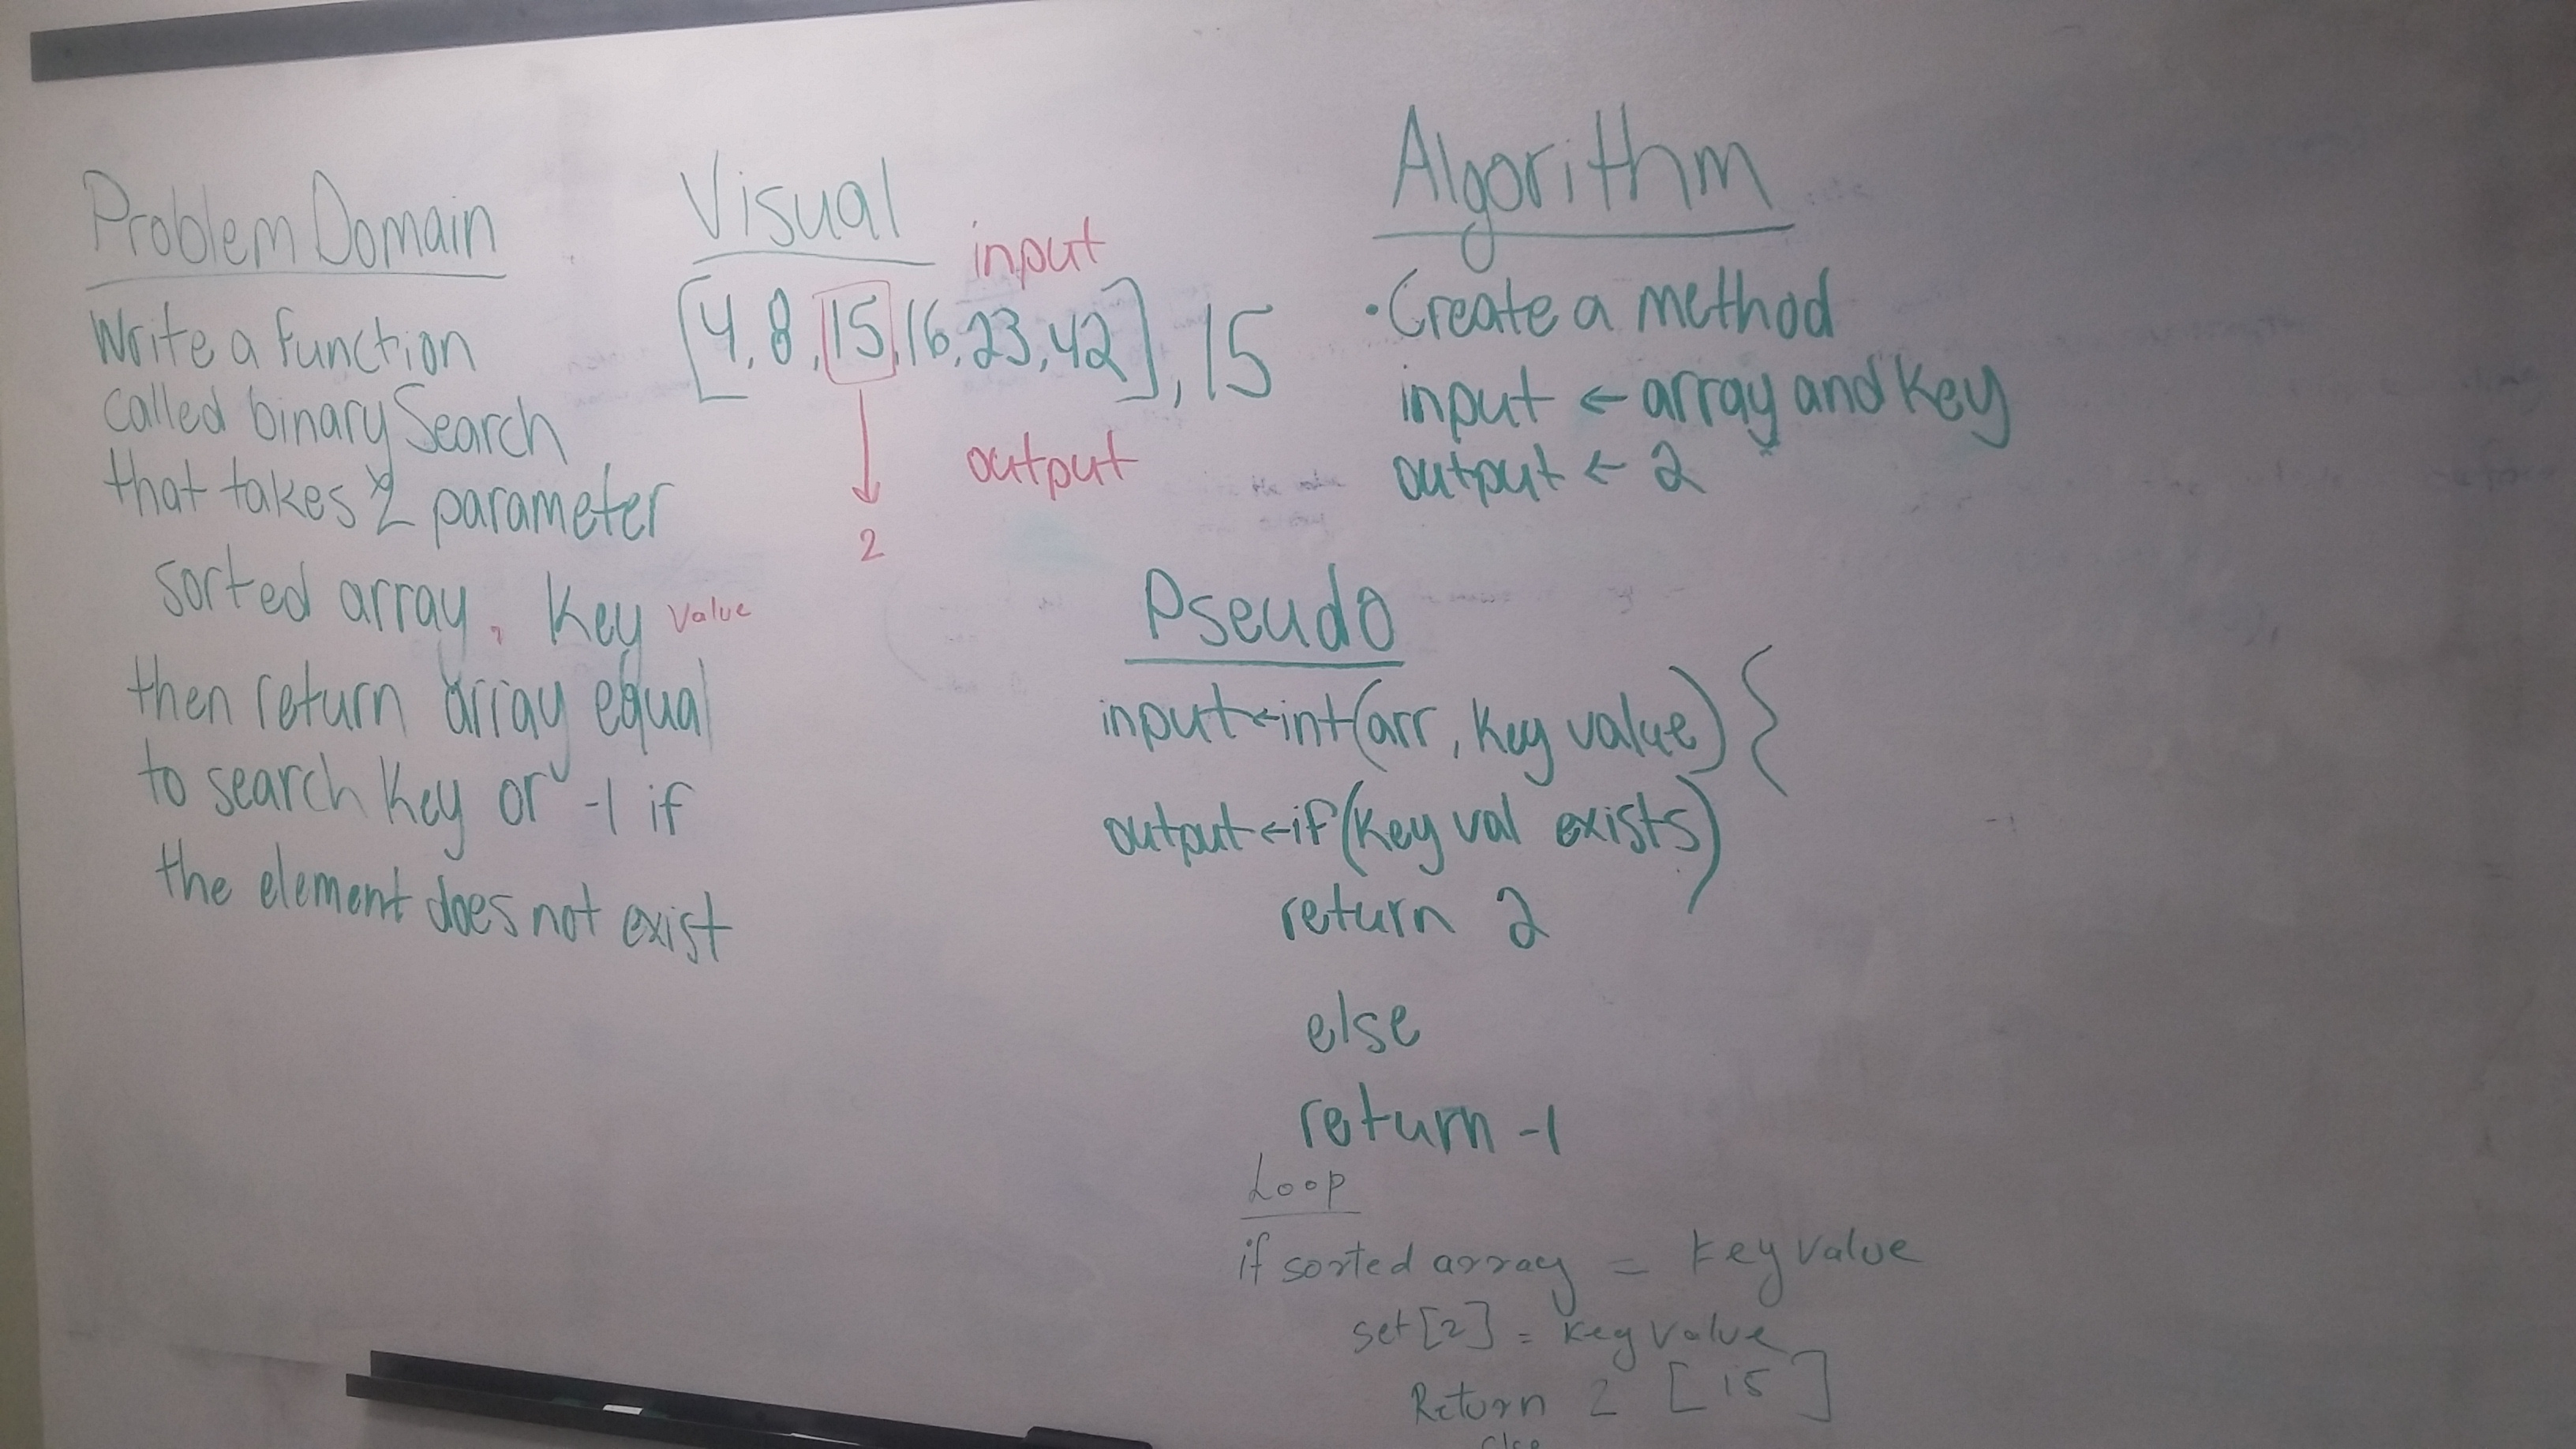 Problem Domain
Write a function
called binarySearch
that takes 2 parameter
sorted array, Key value
then return array equal
to search Key or -1 if
the element does not exist
Visual
input
[4,8,15,16,23,42],15
output
2
Algorithm
• Create a method
input ← array and Key
output ← 2
Pseudo
input ← int(arr, Key value) {
output ← if(Key val exists)
return 2
else
return -1
Loop
if sorted array = Key value
set[2] = key value
Return 2 [15]
else